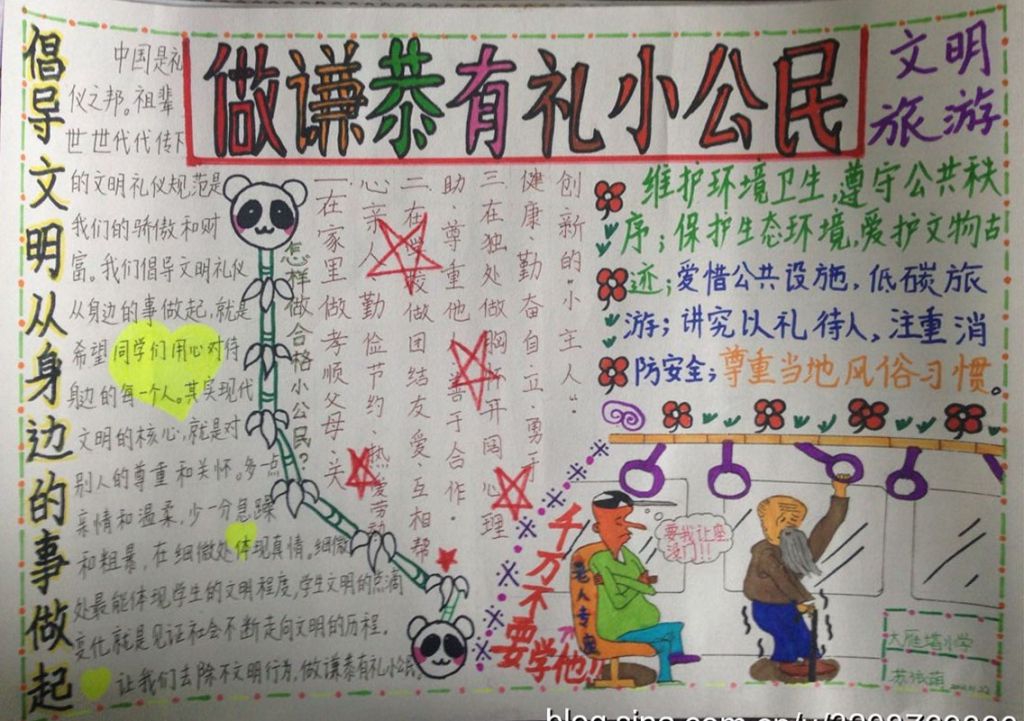 做谦恭有礼小公民
倡导文明从身边的事做起
中国是礼
仪之邦。祖辈
世世代代传下
的文明礼仪规范是
我们的骄傲和财
富。我们倡导文明礼仪
从身边的事做起,就是
希望同学们用心对待
身边的每一个人。其实现代
文明的核心,就是对
别人的尊重和关怀。多一点
亲情和温柔,少一分急躁
和粗暴,在细微处体现真情。细微
处最能体现学生的文明程度,学生文明的点滴
变化,就是见证社会不断走向文明的历程。
让我们去除不文明行为,做谦恭有礼小公民
怎样做合格小公民?
一在家里做孝顺父母、关
心亲人、勤俭节约、热爱劳动
二、在学校做团结友爱、互相帮
助、尊重他人、善于合作、
三、在独处做胸怀开阔心理
健康、勤奋自立、勇于
创新的“小主人”。
文明
旅游
维护环境卫生,遵守公共秩
序;保护生态环境,爱护文物古
迹;爱惜公共设施,低碳旅
游;讲究以礼待人,注重消
防安全;尊重当地风俗习惯。
千万不
要学他!!
老人专座
要我让座
没门!!!
大雁塔小学